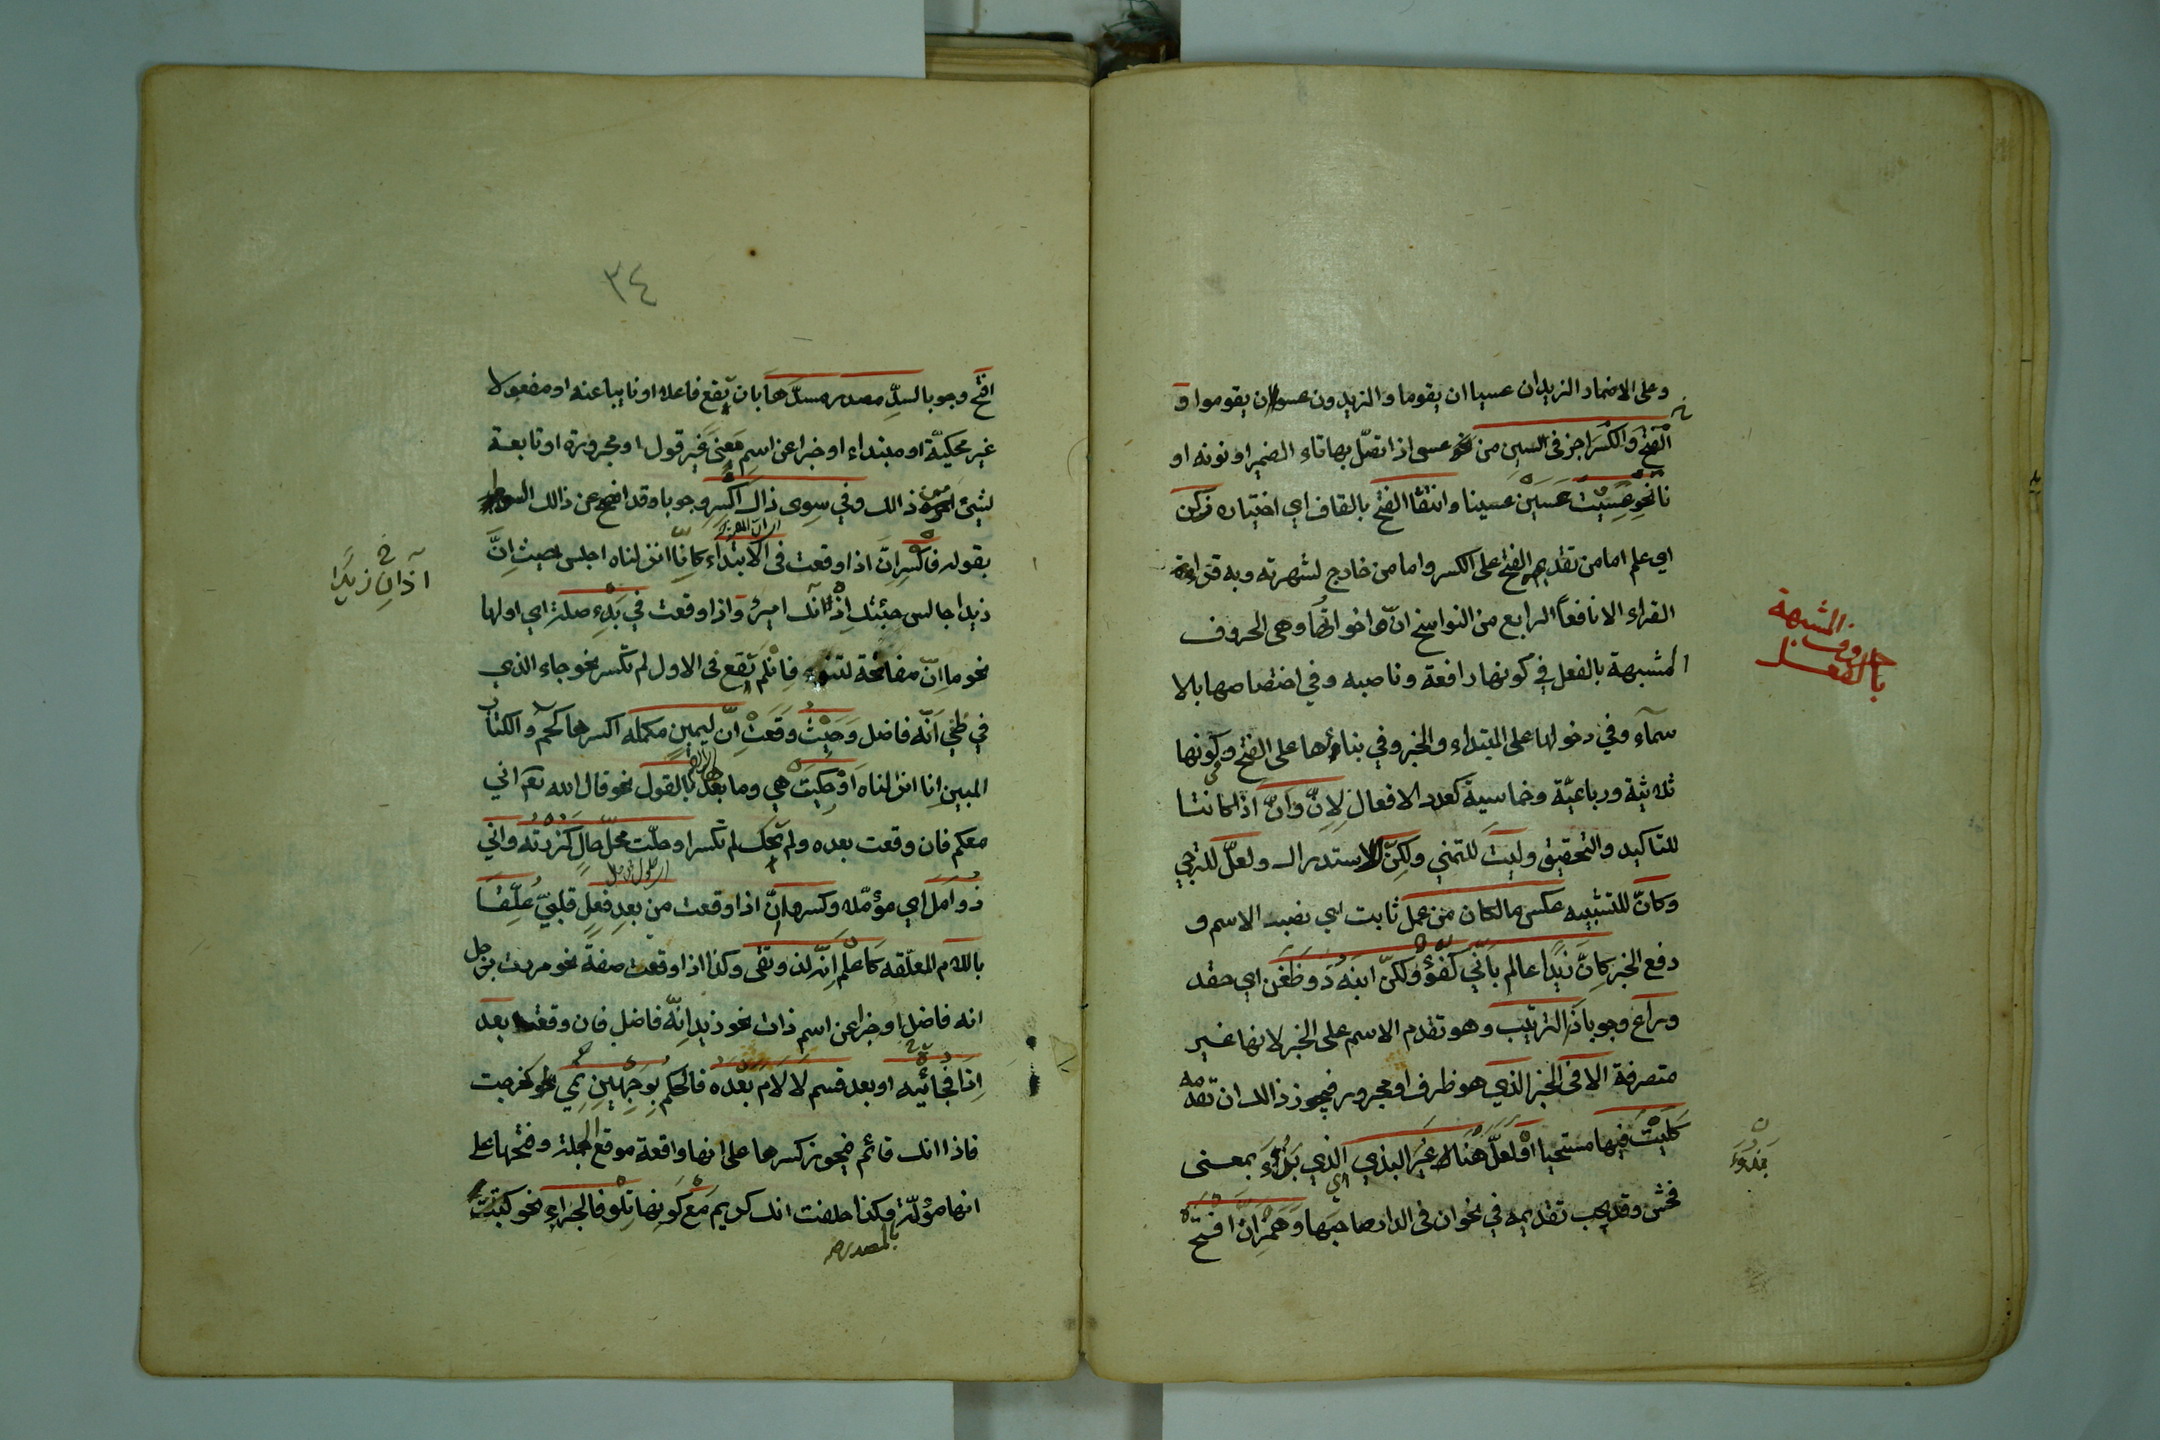 وعلى الاضمار الزيدان عسيا ان يقوما والزيدون عسوا ان يقوموا و
الفتح والكسر اجز في السين من نحو عسى اذا اتصل بها تاء الضمير او نونه او
نا نحو عسيت عسين عسينا وانتقا الفتح بالقاف اي اختياره زكن
اي علم اما من تقديم الفتح على الكسر واما من خارج لشهرته وبه قراءة
القراء الا نافعا الرابع من النواسخ ان واخواتها وهي الحروف
المشبهة بالفعل في كونها رافعة وناصبه وفي اختصاصها بالا
سماء وفي دخولها على المبتداء والخبر وفي بنائها على الفتح وفي كونها
ثلاثية ورباعية وخماسية كعدد الافعال لان وان اذا كانتا
للتاكيد والتحقيق وليت للتمني ولكن للاستدراك ولعل للترجي
وكان للتشبيه عكس ما لكان من عمل ثابت اي نصب الاسم و
رفع الخبر كان زيدا عالم باني كفؤ ولكن ابنه ذو ضغن اي حقد
وراع وجوبا ذا الترتيب وهو تقدم الاسم على الخبر لانها غير
متصرفة الا في الخبر الذي هو ظرف او مجرور فيجوز ذالك ان تقدمه
كليت فيها مستحيا او لعل هنا غير البذي اي الذي بذؤ بمعنى
فحش وقد يجب تقديمه في نحو ان في الدار صاحبها وهمز ان افتح
الحروف المشبهة
بالفعل
٣٤
افتح وجوبا لسد مصدر مسدها بان يقع فاعلا او نايبا عنه او مفعولا
غير محكية او مبتداء او خبرا عن اسم معنى غير قول او مجرورة او تابعة
لشيئ من ذالك وفي سوى ذاك اكسر وجوبا وقد افصح عن ذالك
بقوله فاكسر ان اذا وقعت في الابتداء كانا انزلناه اجلس حيث ان
زيدا جالس جئتك اذ انك امير و اذا وقعت في بدء صلة اي اولها
نحو ما ان مفاتحه لتنوء فان لم يقع في الاول لم تكسر نحو جاء الذي
في ظني انه فاضل وحيث وقعت ان ليمين مكمله اكسرها كحم والكتاب
المبين انا انزلناه او حكيت هي وما بعدها بالقول نحو قال الله تعم اني
معكم فان وقعت بعده ولم تحك لم تكسر او حلت محل حال كزرته واني
ذو امل اي مؤمله وكسروا ان اذا وقعت من بعد فعل قلبي علقا
باللام المعلقه كاعلم انه لذو تقى وكذا اذا وقعت صفة نحو مررت برجل
انه فاضل او خبرا عن اسم ذات نحو زيد انه فاضل فان وقعت بعد
اذا فجائيه او بعد قسم لا لام بعده فالحكم بوجهين نمي نحو خرجت
فاذا انك قائم فيجوز كسرها على انها واقعة موقع الجملة وفتحها على
انها مؤلة بالمصدر وكذا حلفت انك كريم مع كونها تلو فا الجزاء نحو كتبت